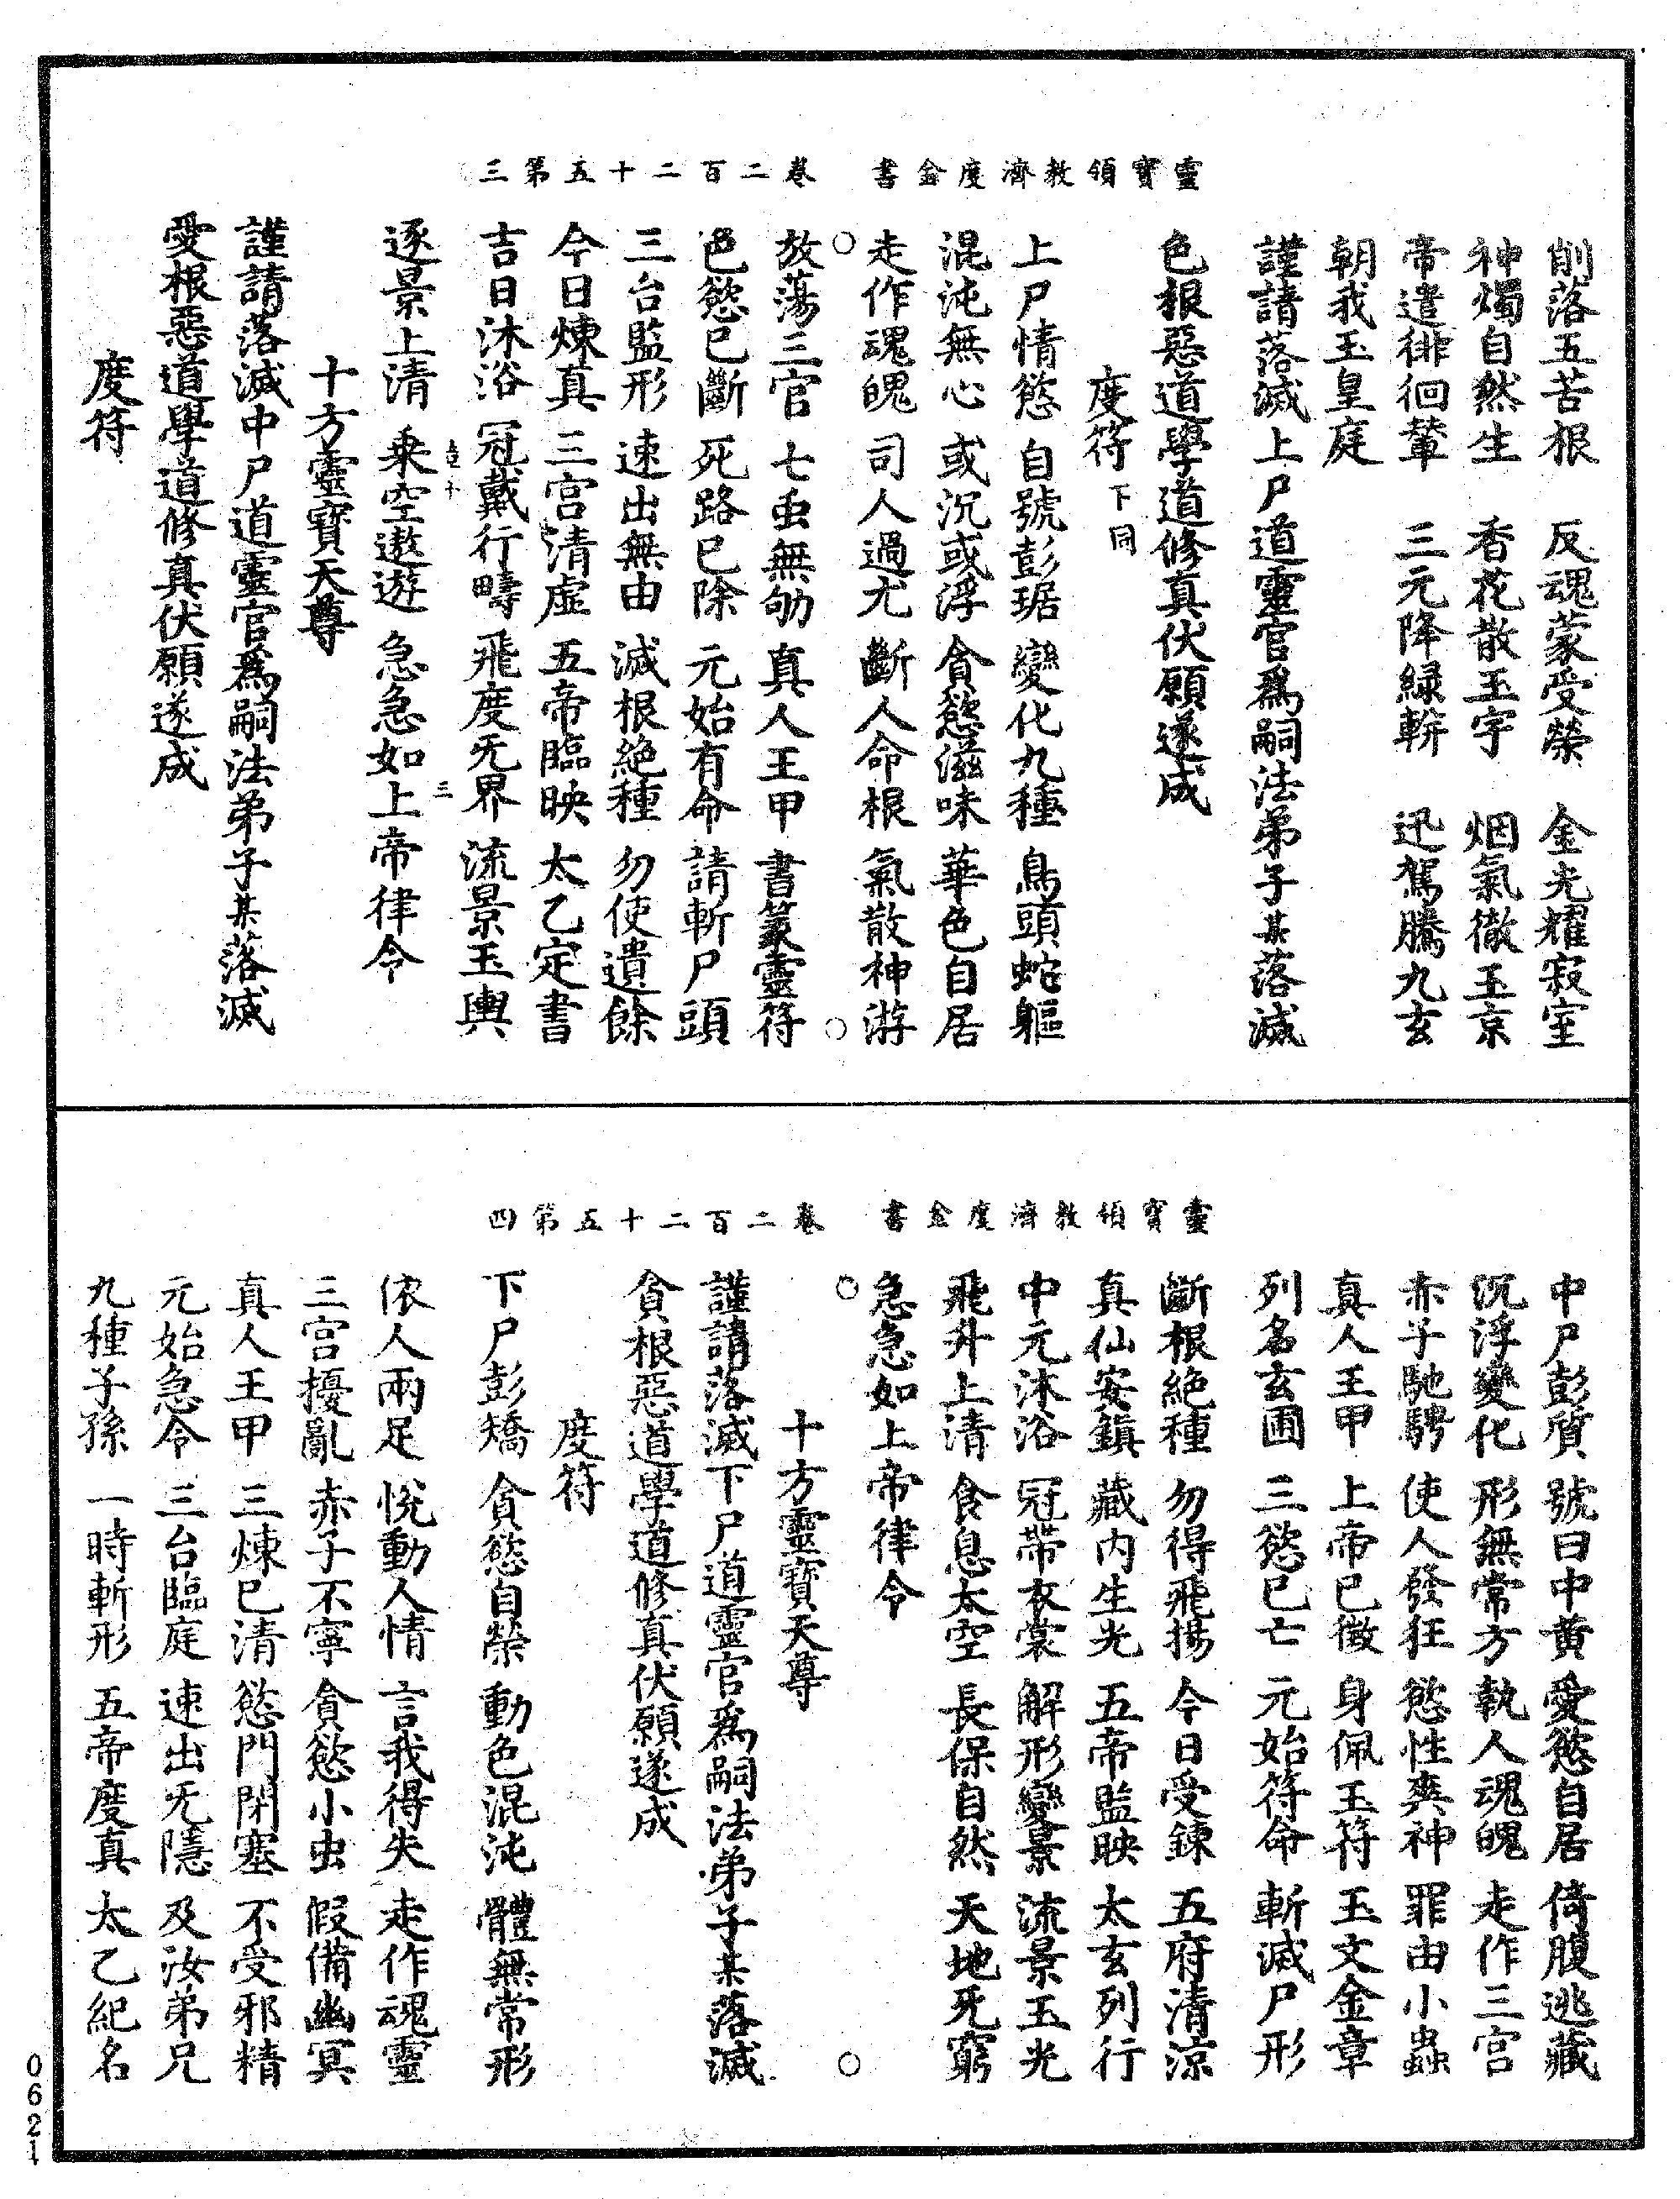 靈寶領教濟度金書　卷二百二十五第三
削落五苦根　反魂蒙受榮　金光耀寂室
神燭自然生　香花散玉宇　烟氣徹玉京
帝遣徘徊輦　三元降緑軿　迅駕騰九玄
朝我玉皇庭
謹請落滅上尸道靈官爲嗣法弟子某落滅
色根惡道學道修真伏願遂成
度符下同
上尸情慾　自號彭琚　變化九種　鳥頭蛇軀
混沌無心　或沉或浮　貪慾滋味　華色自居
走作魂魄　司人過尤　斷人命根　氣散神游
放蕩三官　七虫無劬　真人王甲　書篆靈符
色慾已斷　死路已除　元始有命　請斬尸頭
三台監形　速出無由　滅根絕種　勿使遺餘
今日煉真　三宮清虛　五帝臨映　太乙定書
吉日沐浴　冠戴行疇　飛度旡界　流景玉輿
三
逐景上清　乗空遨遊　急急如上帝律令
十方靈寶天尊
謹請落滅中尸道靈官爲嗣法弟子某落滅
愛根惡道學道修真伏願遂成
度符
靈寶領教濟度金書　卷二百二十五第四
中尸彭質　號曰中黄　愛慾自居　倚腹逃藏
沉浮變化　形無常方　執人魂魄　走作三宮
赤子馳騁　使人發狂　慾性爽神　罪由小蟲
真人王甲　上帝已徵　身佩玉符　玉文金章
列名玄圃　三慾已亡　元始符命　斬滅尸形
斷根絕種　勿得飛揚　今日受鍊　五府清涼
真仙安鎮　藏内生光　五帝監映　太玄列行
中元沐浴　冠帶衣裳　解形變景　流景玉光
飛升上清　食息太空　長保自然　天地旡窮
急急如上帝律令
十方靈寶天尊
謹請落滅下尸道靈官爲嗣法弟子某落滅
貪根惡道學道修真伏願遂成
度符
下尸彭矯　貪慾自榮　動色混沌　體無常形
依人兩足　悦動人情　言我得失　走作魂靈
三宮擾亂　赤子不寧　貪慾小虫　假備幽冥
真人王甲　三煉已清　慾門閉塞　不受邪精
元始急令　三台臨庭　速出旡隱　及汝弟兄
九種子孫　一時斬形　五帝度真　太乙紀名
0621